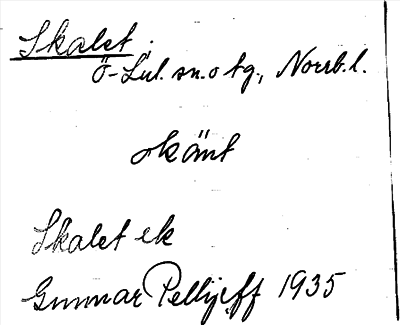 Skalet.
Ö-Lul. sn. o tg., Norrb. l.
okänt
Skalet ek
Gunnar Pellijeff 1935